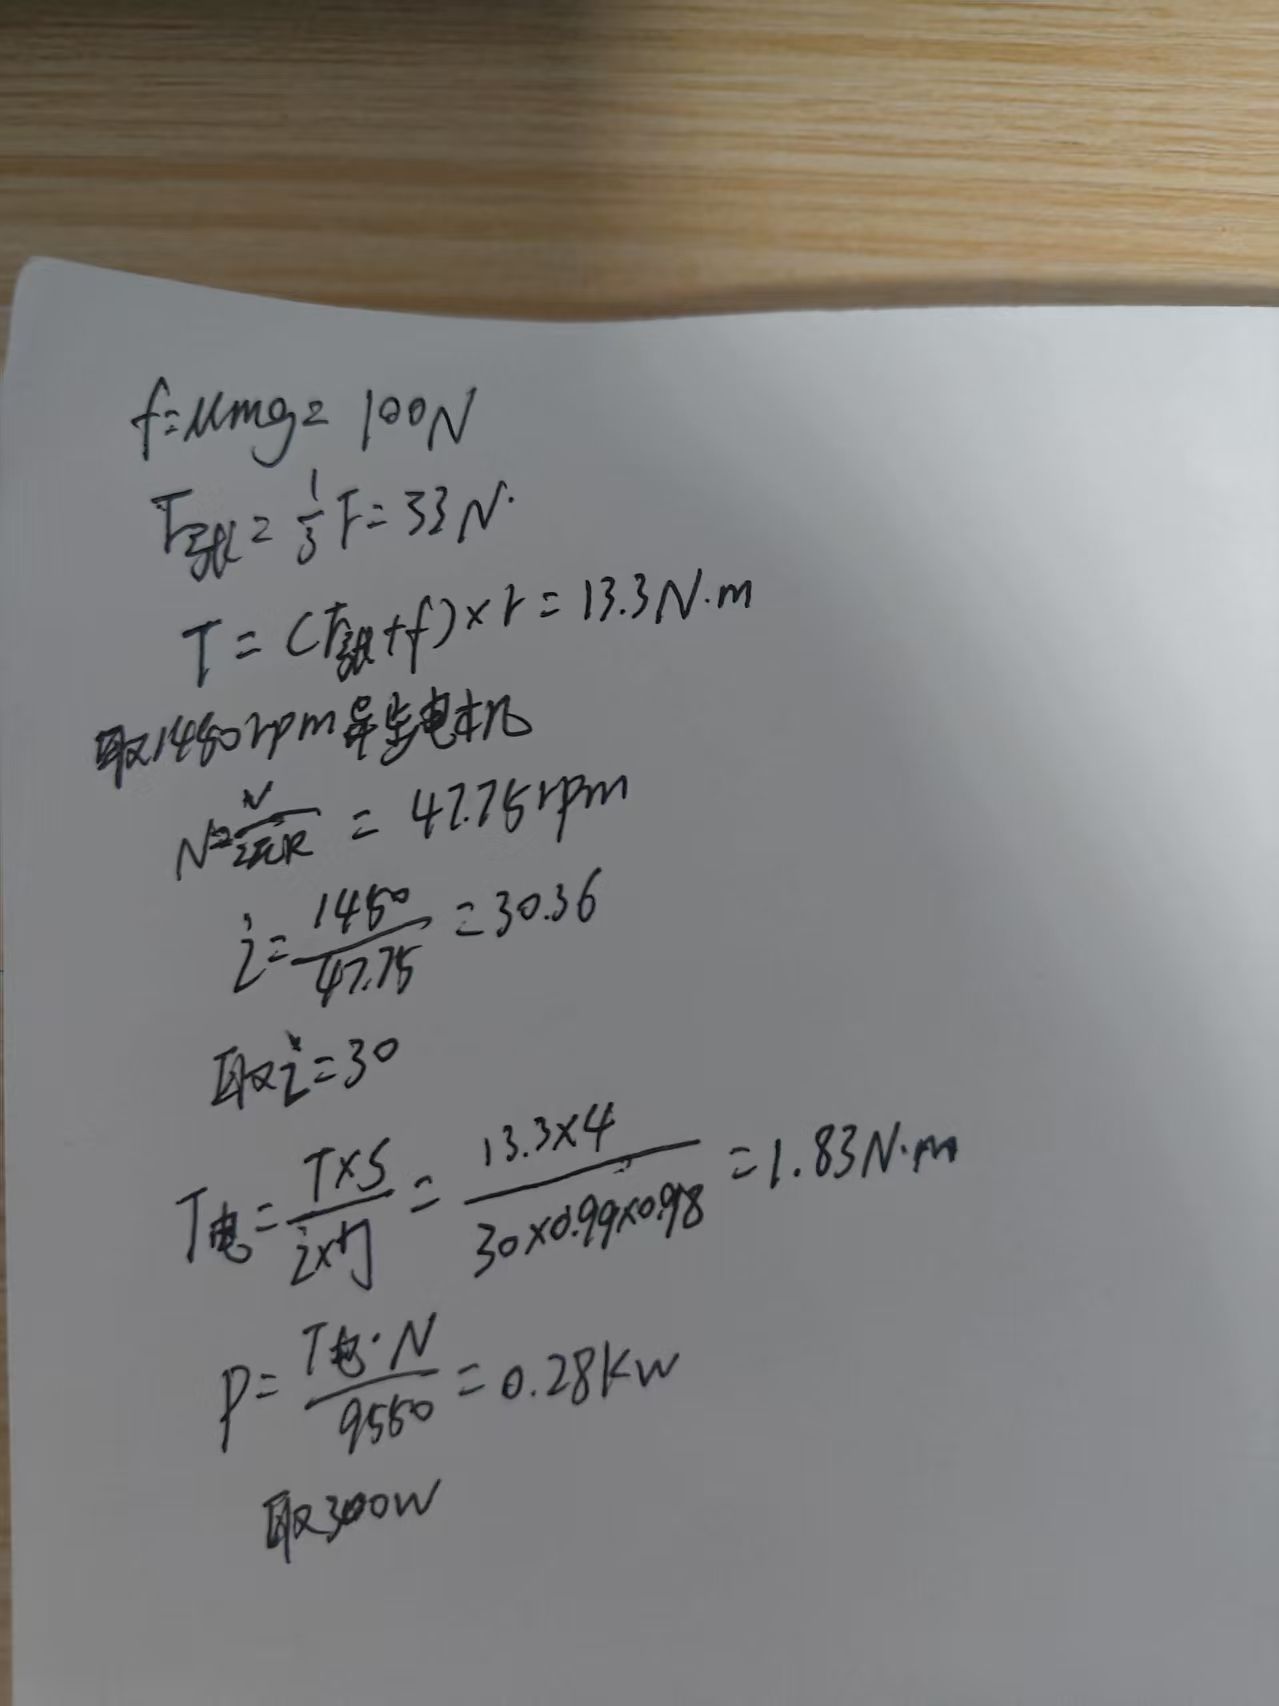 f=μmg=100N
F张=1/3F=33N.
T=(F张+f)×r=13.3N·m
取1450rpm异步电机
N=v/2πR=47.75rpm
i=1450/47.75=30.36
取i=30
T电=T×S/i×η=13.3×4/30×0.99×0.98=1.83N·m
P=T电·N/9550=0.28kw
取300W